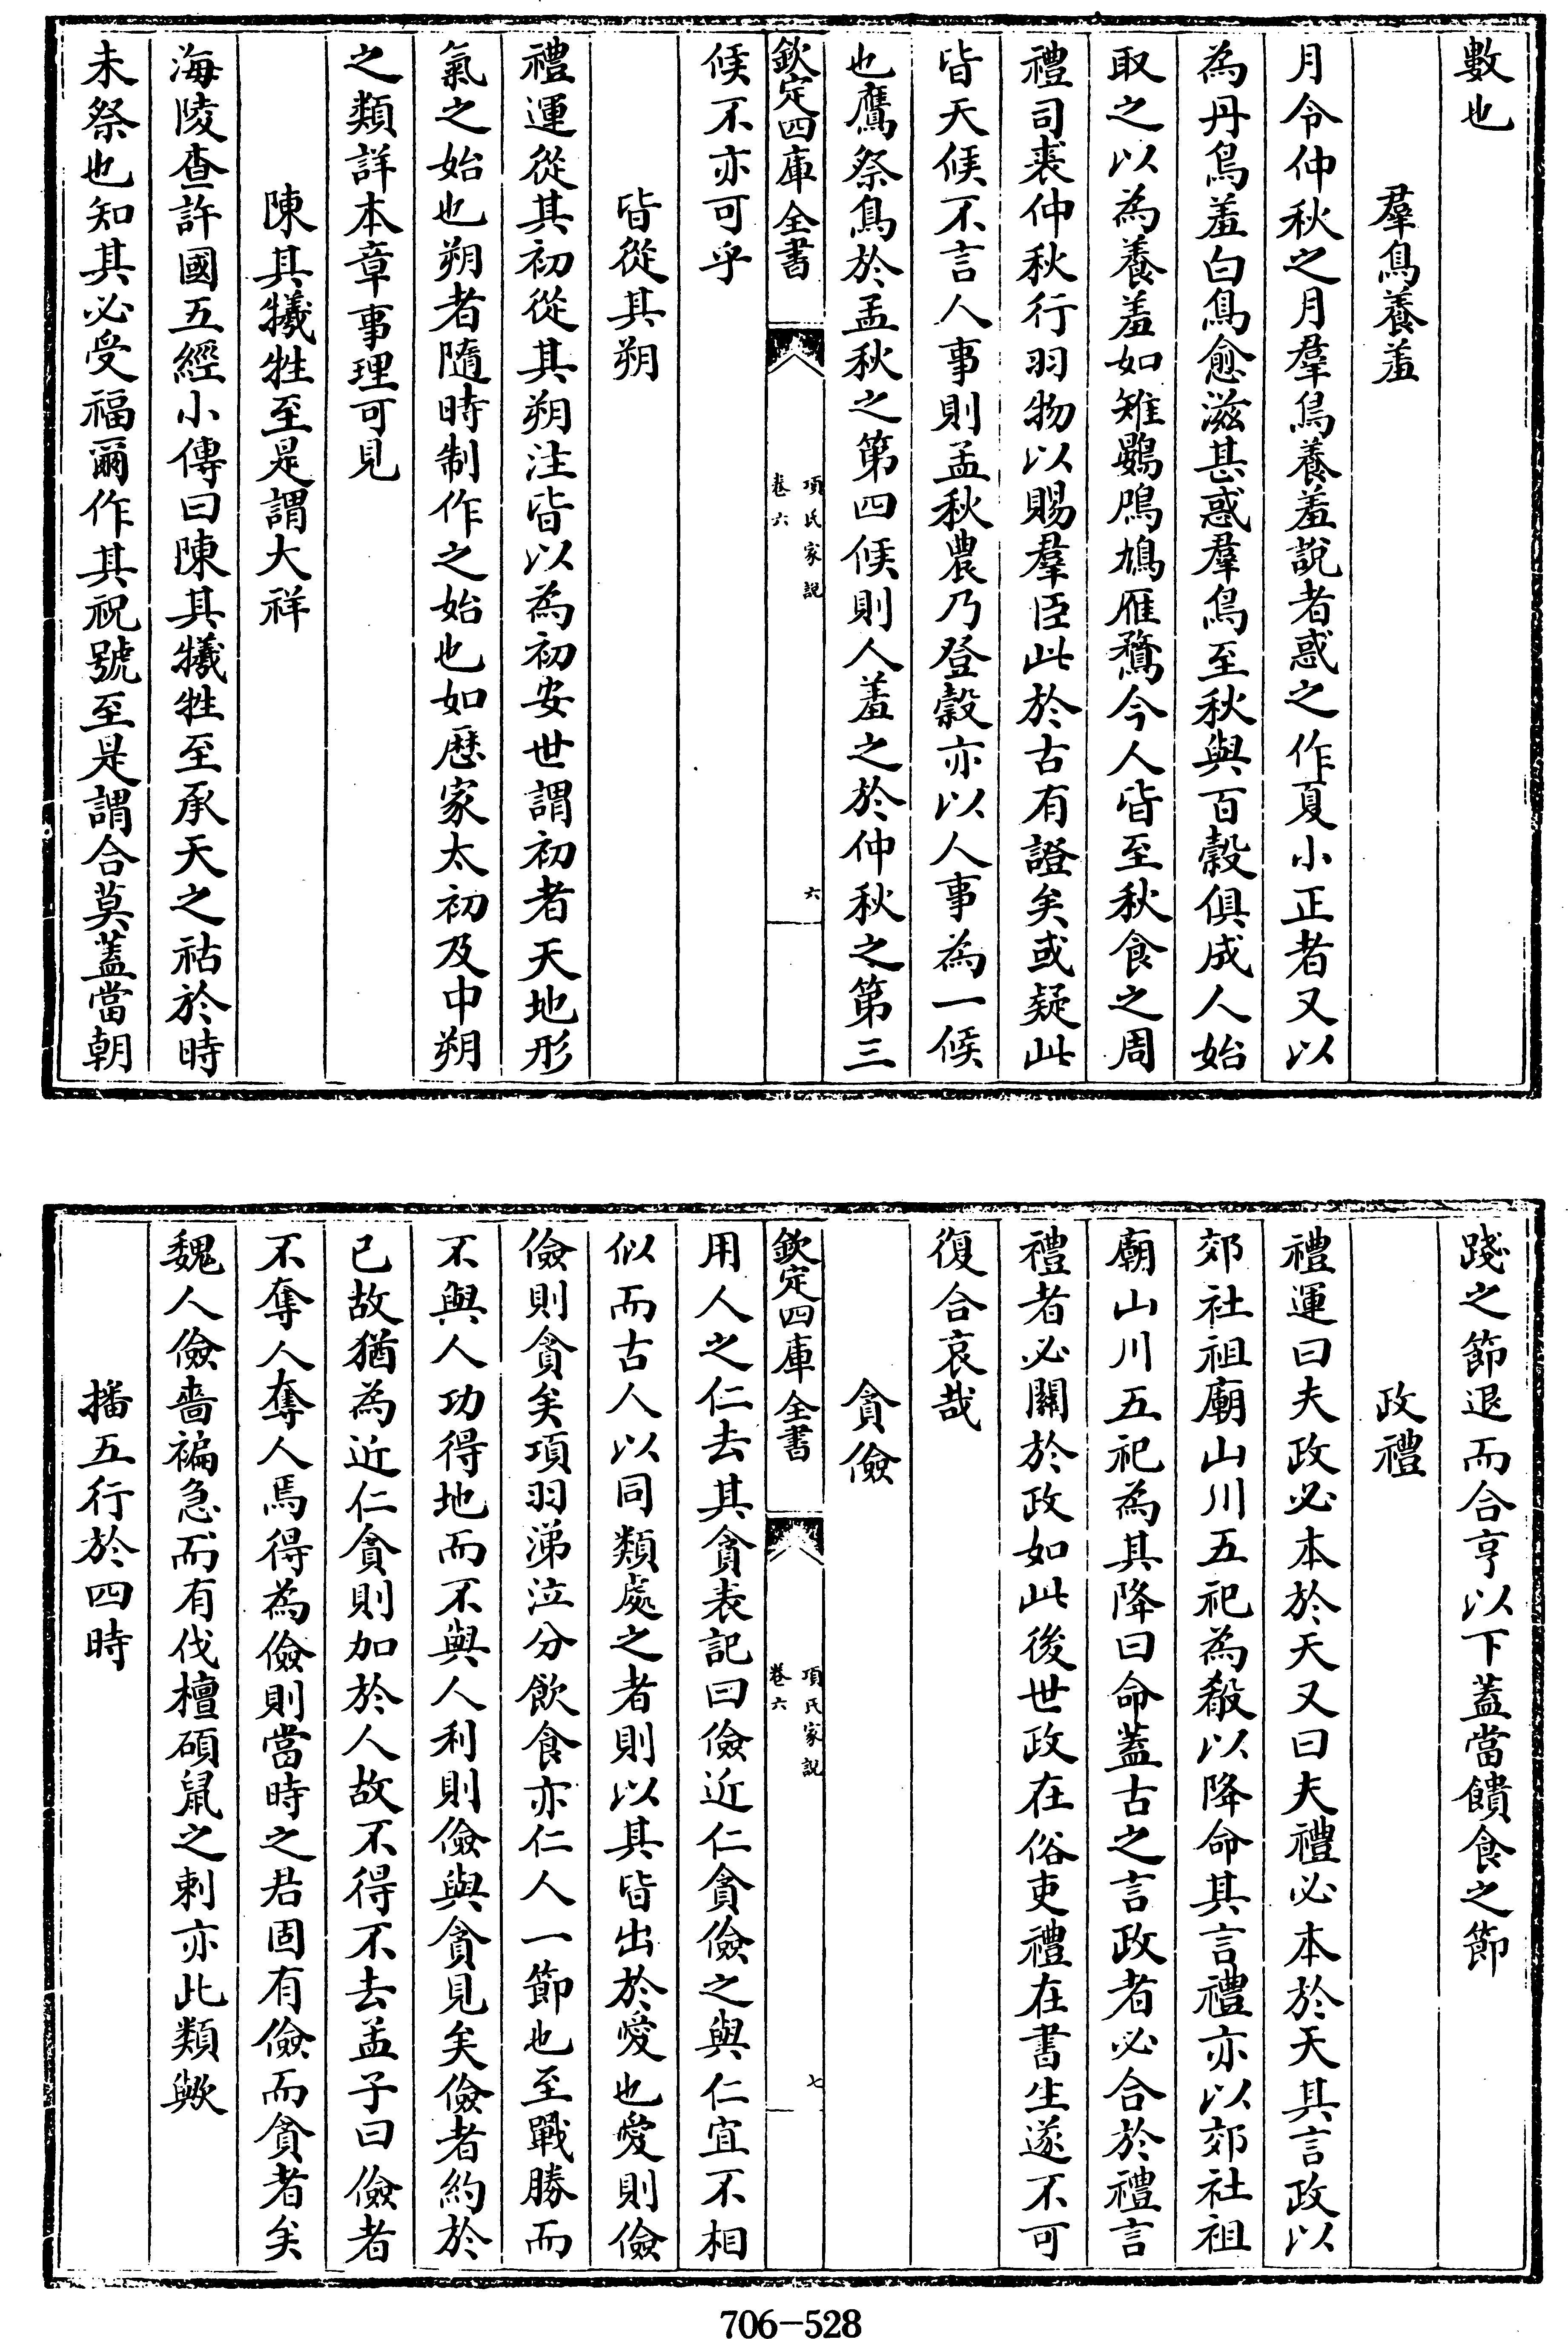 數也
羣鳥養羞
月令仲秋之月羣鳥養羞說者惑之作夏小正者又以
為丹鳥羞白鳥愈滋甚惑羣鳥至秋與百穀俱成人始
取之以為養羞如雉鷃鴈鳩雁鶩今人皆至秋食之周
禮司裘仲秋行羽物以賜羣臣此於古有證矣或疑此
皆天候不言人事則孟秋農乃登穀亦以人事為一候
也鷹祭鳥於孟秋之第四候則人羞之於仲秋之第三
欽定四庫全書
項氏家說
卷六
六
候不亦可乎
皆從其朔
禮運從其初從其朔注皆以為初安世謂初者天地形
氣之始也朔者隨時制作之始也如厯家太初及中朔
之類詳本章事理可見
陳其犧牲至是謂大祥
海陵查許國五經小傳曰陳其犧牲至承天之祜於時
未祭也知其必受福爾作其祝號至是謂合莫蓋當朝
踐之節退而合亨以下蓋當饋食之節
政禮
禮運曰夫政必本於天又曰夫禮必本於天其言政以
郊社祖廟山川五祀為殽以降命其言禮亦以郊社祖
廟山川五祀為其降曰命蓋古之言政者必合於禮言
禮者必關於政如此後世政在俗吏禮在書生遂不可
復合哀哉
貪儉
欽定四庫全書
項氏家說
卷六
七
用人之仁去其貪表記曰儉近仁貪儉之與仁宜不相
似而古人以同類處之者則以其皆出於愛也愛則儉
儉則貪矣項羽涕泣分飲食亦仁人一節也至戰勝而
不與人功得地而不與人利則儉與貪見矣儉者約於
已故猶為近仁貪則加於人故不得不去孟子曰儉者
不奪人奪人焉得為儉則當時之君固有儉而貪者矣
魏人儉嗇褊急而有伐檀碩鼠之刺亦此類歟
播五行於四時
706-528